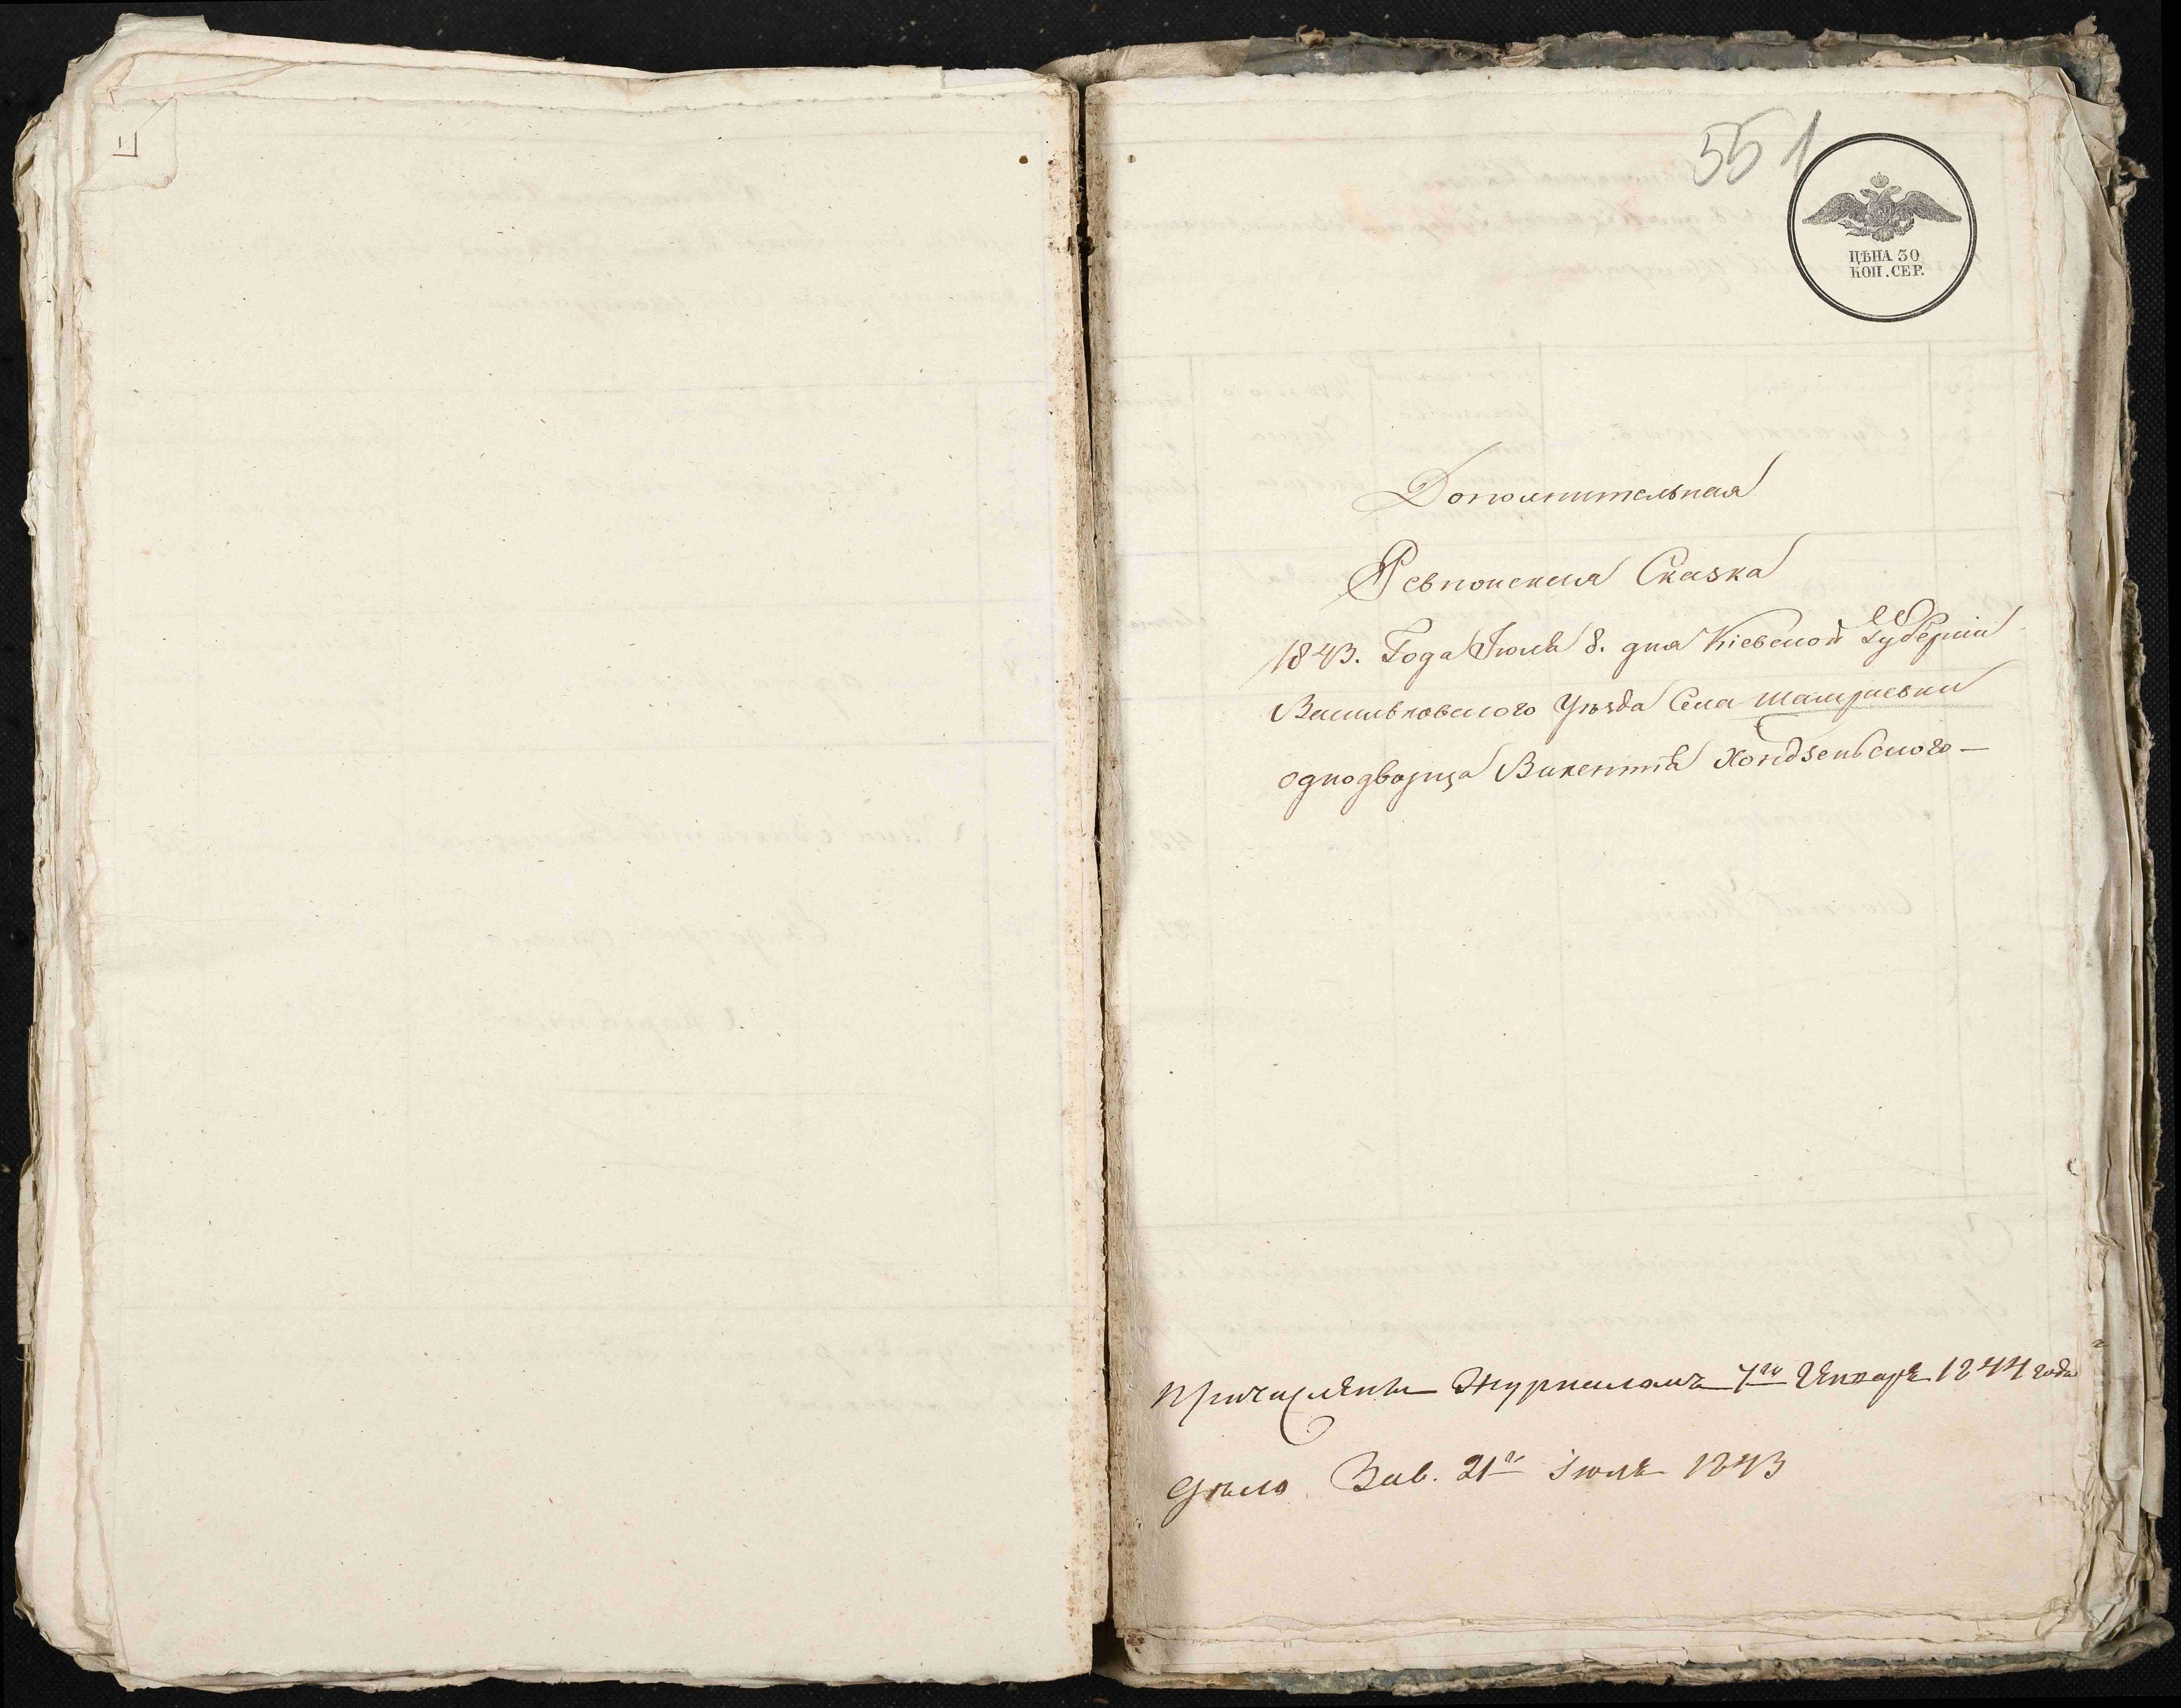 551
ЦѢНА 30
КОП. СЕР.
Дополнительная
Ревизская Сказка
1843. Года Іюля 8. дня Кіевской Губерніи
Васильковского Уѣзда Села Шамраевки
однодворца Викентія Хондзенского —
Причислены Журналомъ 7го Января 1844 года
дѣло Зав. 21го Іюля 1843